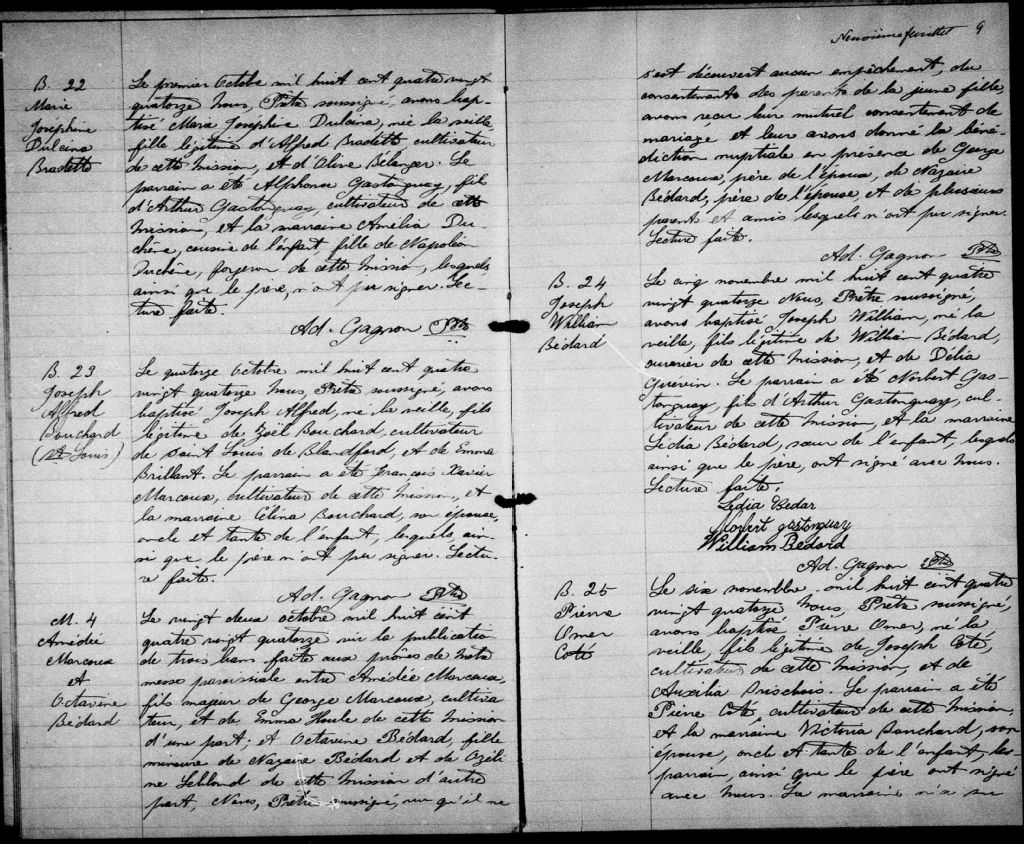 B. 22
Marie
Joséphine
Dulcina
Bradette
Le premier Octobre mil huit cent quatre vingt
quatorze Nous, Prêtre soussigné, avons bap-
tisé Marie Joséphine Dulcina, née la veille,
fille légitime d'Alfred Bradette cultivateur
de cette mission, et d'Olive Bélanger. Le
parrain a été Alphonse Gastonguay, fils
d'Arthur Gastonguay, cultivateur de cette
Mission, et la marraine Amélia Du-
chêne, cousine de l'enfant, fille de Napoléon
Duchêne, forgeron de cette Mission, lesquels
ainsi que le père, n'ont pu signer. Lec-
ture faite.
Ad. Gagnon Ptre
B. 23
Joseph
Alfred
Bouchard
(St Louis)
Le quatorze Octobre mil huit cent quatre
vingt quatorze Nous, Prêtre soussigné, avons
baptisé Joseph Alfred, né la veille, fils
légitime de Joël Bouchard, cultivateur
de Saint Louis de Blandford, et de Emma
Brillant. Le parrain a été François Xavier
Marcoux, cultivateur de cette Mission, et
la marraine Célina Bouchard, son épouse,
oncle et tante de l'enfant, lesquels, ain-
si que le père n'ont pu signer. Lectu-
re faite.
Ad. Gagnon Ptre
M. 4
Amédée
Marcoux
et
Octavine
Bédard
Le vingt deux octobre mil huit cent
quatre vingt quatorze vu la publication
de trois bans faite aux prônes de notre
messe paroissiale entre Amédée Marcoux,
fils majeur de George Marcoux, cultiva
teur, et de Emma Houle de cette mission
d'une part; et Octavine Bédard, fille
mineure de Nazaire Bédard et de Ozéli
ne Leblond de cette Mission d'autre
part, Nous, Prêtre soussigné, vu qu'il ne
Neuvième feuillet 9
s'est découvert aucun empêchement, du
consentement des parents de la jeune fille
avons reçu leur mutuel consentement de
mariage et leur avons donné la béné-
diction nuptiale en présence de George
Marcoux, père de l'époux, de Nazaire
Bédard, père de l'épouse, et de plusieurs
parents et amis lesquels n'ont pu signer.
Lecture faite.
Ad. Gagnon Ptre
B. 24
Joseph
William
Bédard
Le cinq novembre mil huit cent quatre
vingt quatorze Nous, Prêtre soussigné,
avons baptisé Joseph William, né la
veille, fils légitime de William Bédard,
ouvrier de cette Mission, et de Délia
Guérin. Le parrain a été Norbert Gas-
tonguay, fils d'Arthur Gastonguay, cul-
tivateur de cette Mission, et la marraine
Lédia Bédard, sœur de l'enfant, lesquels
ainsi que le père, ont signé avec Nous.
Lecture faite.
Lédia Bedar
Norbert gastonguay
William Bédard
Ad. Gagnon Ptre
B. 25
Pierre
Omer
Coté
Le six novembre mil huit cent quatre
vingt quatorze Nous, Prêtre soussigné,
avons baptisé Pierre Omer, né la
veille, fils légitime de Joseph Coté,
cultivateur de cette Mission, et de
Auxilia. Le parrain a été
Pierre Coté, cultivateur de cette Mission,
et la marraine Victoria Bouchard, son
épouse, oncle et tante de l'enfant, les
parrain, ainsi que le père ont signé
avec Nous. La marraine n'a su